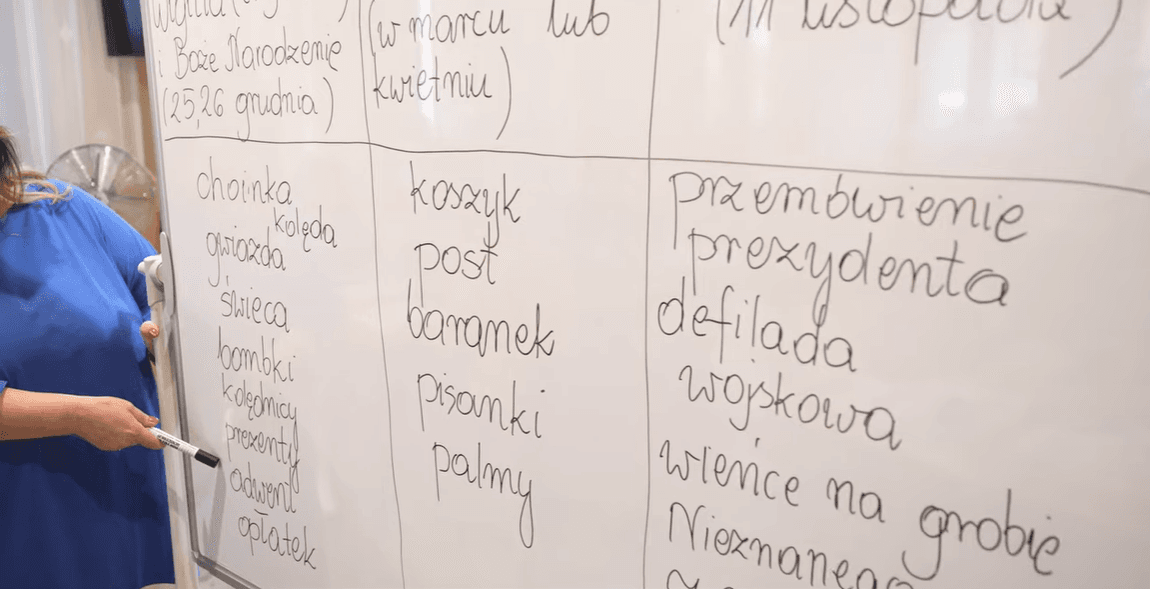 Wigilia (
i Boże Narodzenie
(25,26 grudnia)
(w marcu lub
kwietniu)
(11 listopada)
choinka
kolęda
gwiazda
świeca
bombki
kolędnicy
prezenty
adwent
opłatek
koszyk
post
baranek
pisanki
palmy
przemówienie
prezydenta
defilada
wojskowa
wieńce na grobie
Nieznanego